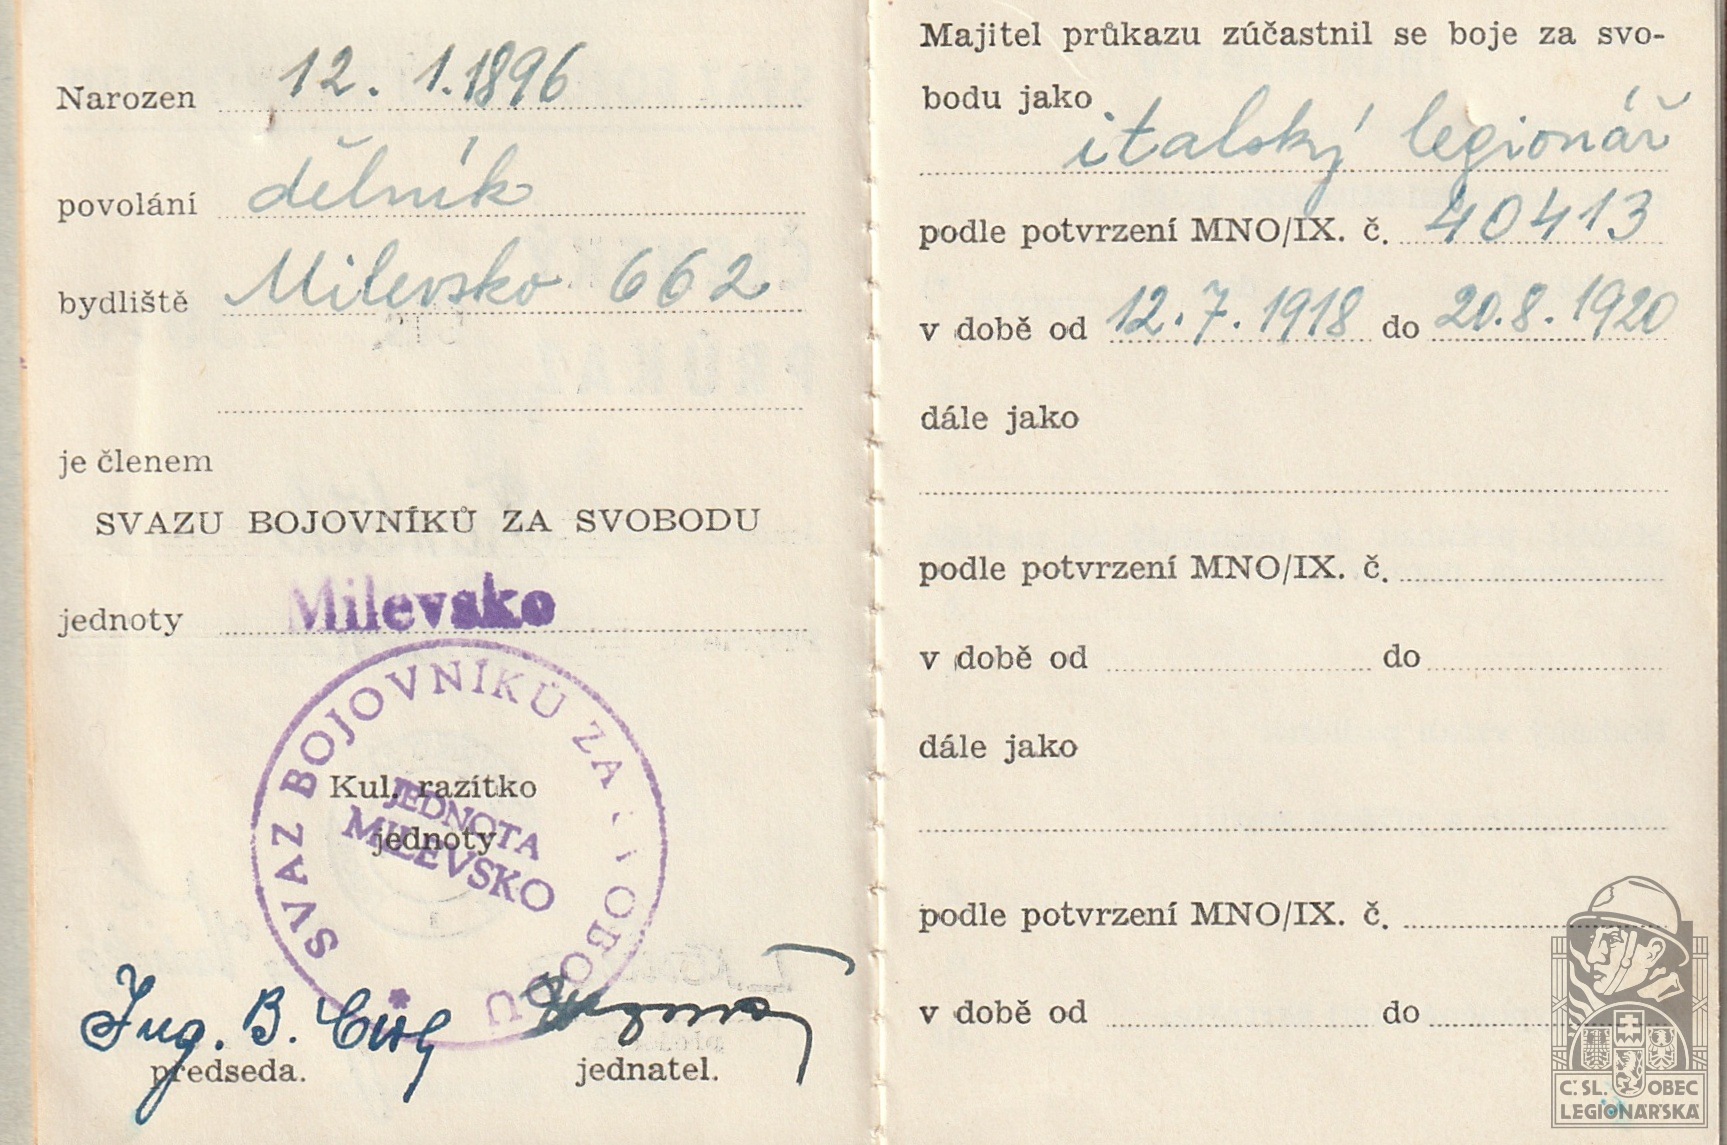 Narozen 12. 1. 1896
povolání dělník
bydliště Milevsko 662
je členem
SVAZU BOJOVNÍKŮ ZA SVOBODU
jednoty Milevsko
SVAZ BOJOVNÍKŮ ZA SVOBODU
Kul. razítko
JEDNOTA
jednoty
MILEVSKO
Ing. B.
předseda.
jednatel.
Majitel průkazu zúčastnil se boje za svo-
bodu jako
italský legionář
podle potvrzení MNO/IX. č. 40413
v době od 12. 7. 1918 do 20. 8. 1920
dále jako
podle potvrzení MNO/IX. č.
v době od do
dále jako
podle potvrzení MNO/IX. č.
v době od do
Č.SL. OBEC
LEGIONÁŘSKÁ